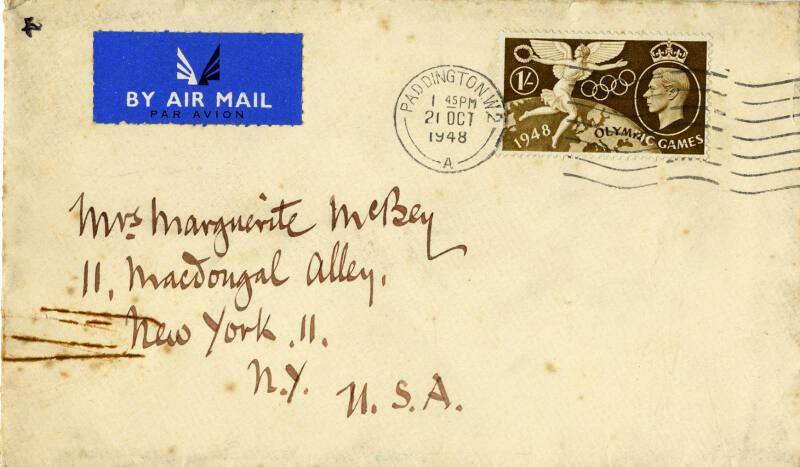 BY AIR MAIL
PAR AVION
PADDINGTON.W.2
1 45PM
21 OCT
1948
A
1/-
1948 OLYMPIC GAMES
Mrs Marguerite McBey
11, Macdougal Alley,
New York .11.
N.Y. U.S.A.